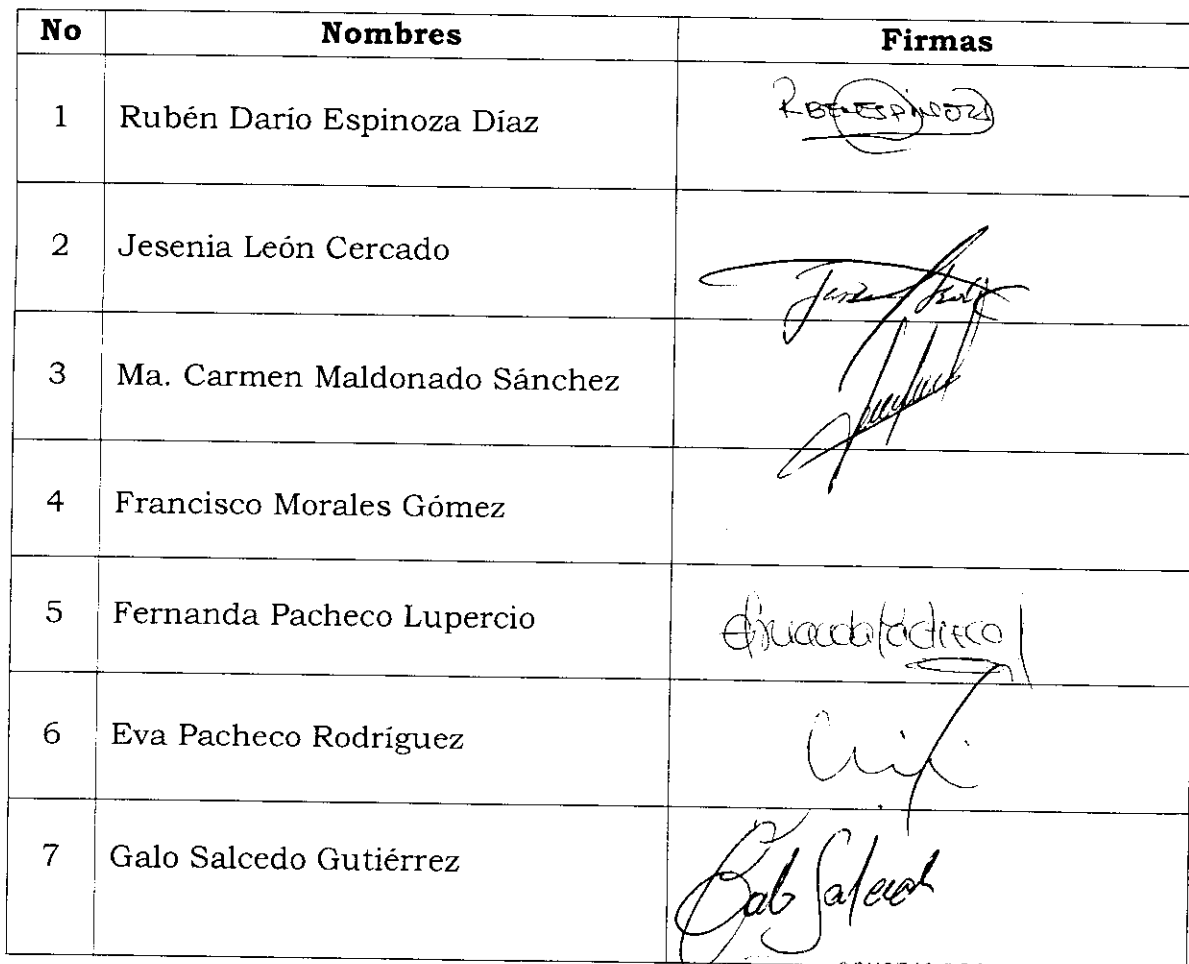 No Nombres Firmas
1 Rubén Darío Espinoza Díaz
2 Jesenia León Cercado
3 Ma. Carmen Maldonado Sánchez
4 Francisco Morales Gómez
5 Fernanda Pacheco Lupercio
6 Eva Pacheco Rodríguez
7 Galo Salcedo Gutiérrez Galo Salcedo